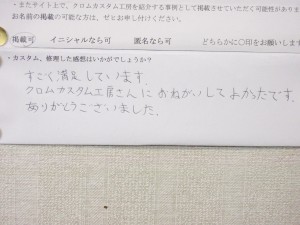 ・またサイト上で、クロムカスタム工房を紹介する事例として掲載させていただく可能性があります
お名前の掲載の可能な方は、ぜひお申し付けください。
掲載可　イニシャルなら可　匿名なら可　どちらかに○印をお願いします
・カスタム、修理した感想はいかがでしょうか？
すごく満足しています。
クロムカスタム工房さんにおねがいしてよかったです。
ありがとうございました。